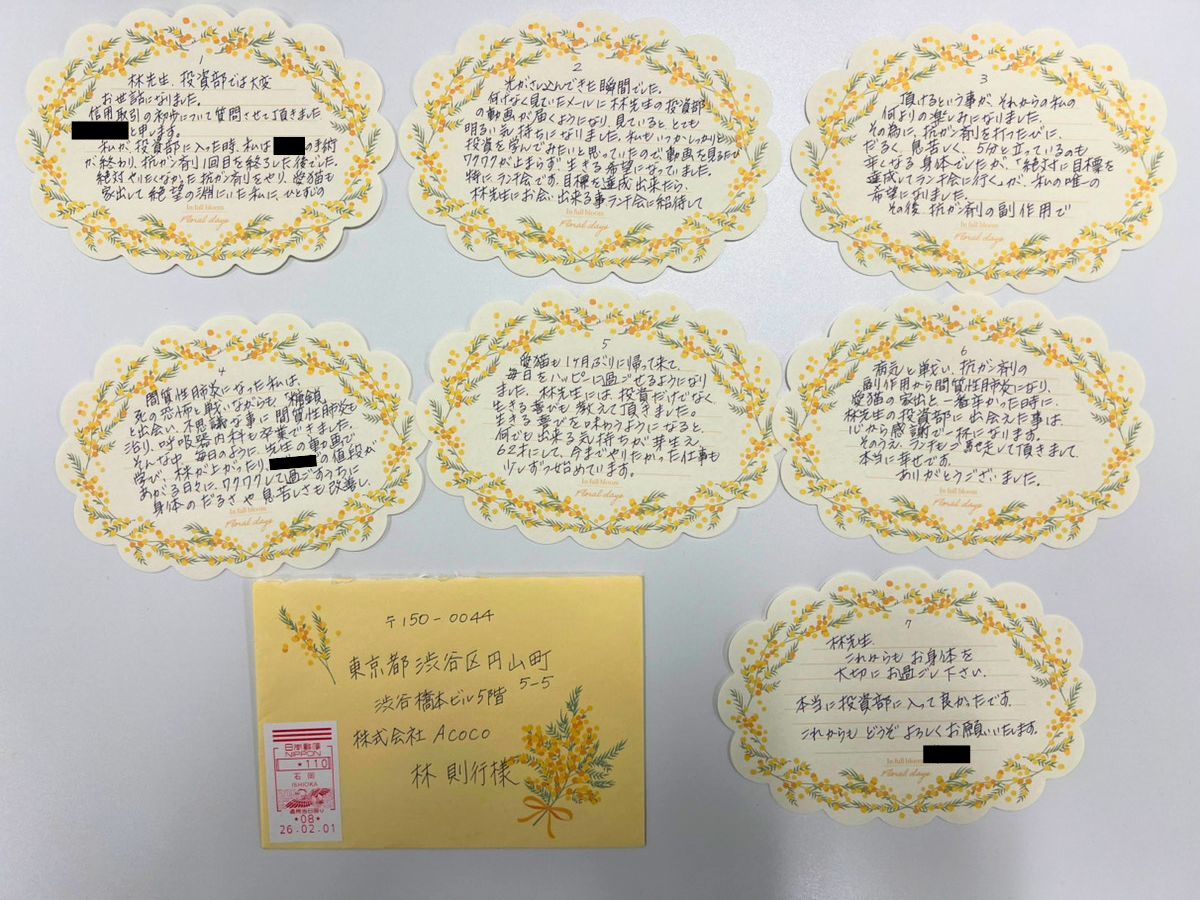 1
林先生、投資部では大変
お世話になりました。
信用取引の初歩について質問させて頂きました
と申します。
私が、投資部に入った時、私は の手術
が終わり、抗ガン剤1回目を終了した後でした。
絶対やりたくなかった抗ガン剤をやり、愛猫も
家出して絶望の淵にいた私に、ひとすじの
In full bloom
Floral days
2
光がさし込んできた瞬間でした。
何げなく見ていたメールに林先生の投資部
の動画が届くようになり、見ていると、とても
明るい気持ちになりました。私もいつかしっかりと
投資を学んでみたいと思っていたので動画を見るたび
ワクワクが止まらず生きる希望になっていました。
特にランチ会です。目標を達成出来たら、
林先生にお会い出来る事ランチ会に招待して
In full bloom
Floral days
3
頂けるという事が、それからの私の
何よりの楽しみになりました。
その為に、抗ガン剤を打つたびに、
だるく、息苦しく、5分と立っているのも
辛くなる身体でしたが、「絶対に目標を
達成してランチ会に行く」が、私の唯一の
希望になりました。
その後、抗ガン剤の副作用で
In full bloom
Floral days
4
間質性肺炎になった私は、
死の恐怖と戦いながらも「糖鎖」
と出会い、不思議な事に間質性肺炎も
治り、呼吸器内科も卒業できました。
そんな中、毎日のように、先生の動画で
学び、株が上がったり、 の値段が
あがる日々に、ワクワクして過ごすうちに
身体のだるさや息苦しさも改善し、
In full bloom
Floral days
5
愛猫も1ヶ月ぶりに帰って来て、
毎日をハッピーに過ごせるようになり
ました。林先生には、投資だけでなく
生きる喜びも教えて頂きました。
生きる喜びを味わうようになると、
何でも出来る気持ちが芽生え、
62才にして、今までやりたかった仕事も
少しずつ始めています。
In full bloom
Floral days
6
病気と戦い、抗ガン剤の
副作用から間質性肺炎になり、
愛猫の家出と一番辛かった時に、
林先生の投資部に出会えた事は
心から感謝で一杯になります。
そのうえ、ランチもご馳走して頂きまして、
本当に幸せです。
ありがとうございました。
In full bloom
Floral days
〒150-0044
東京都渋谷区円山町
5-5
渋谷橋本ビル5階
株式会社 Acoco
林 則行様
日本郵便
NIPPON
★110
石岡
ISHIOKA
★08★
26.02.01
7
林先生、
これからもお身体を
大切にお過ごし下さい。
本当に投資部に入って良かったです。
これからもどうぞよろしくお願いいたします。
In full bloom
Floral days